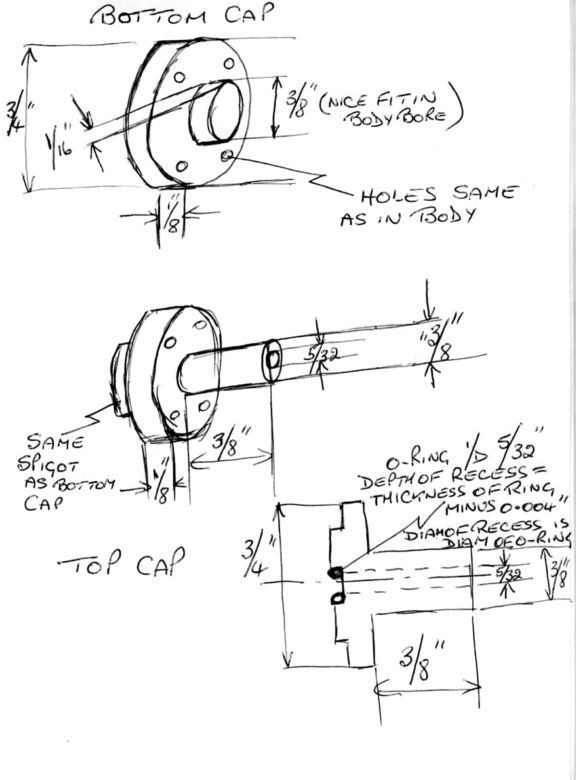 BOTTOM CAP
3/4"
1/16"
3/8" (NICE FIT IN
BODY BORE)
HOLES SAME
AS IN BODY
1/8"
5/32
3/8"
SAME
SPIGOT
AS BOTTOM
CAP
3/8"
1/8"
O-RING I/D 5/32"
DEPTH OF RECESS =
THICKNESS OF RING
MINUS 0.004"
DIAM OF RECESS IS
DIAM OF O-RING
TOP CAP
3/4"
5/32
3/8"
3/8"